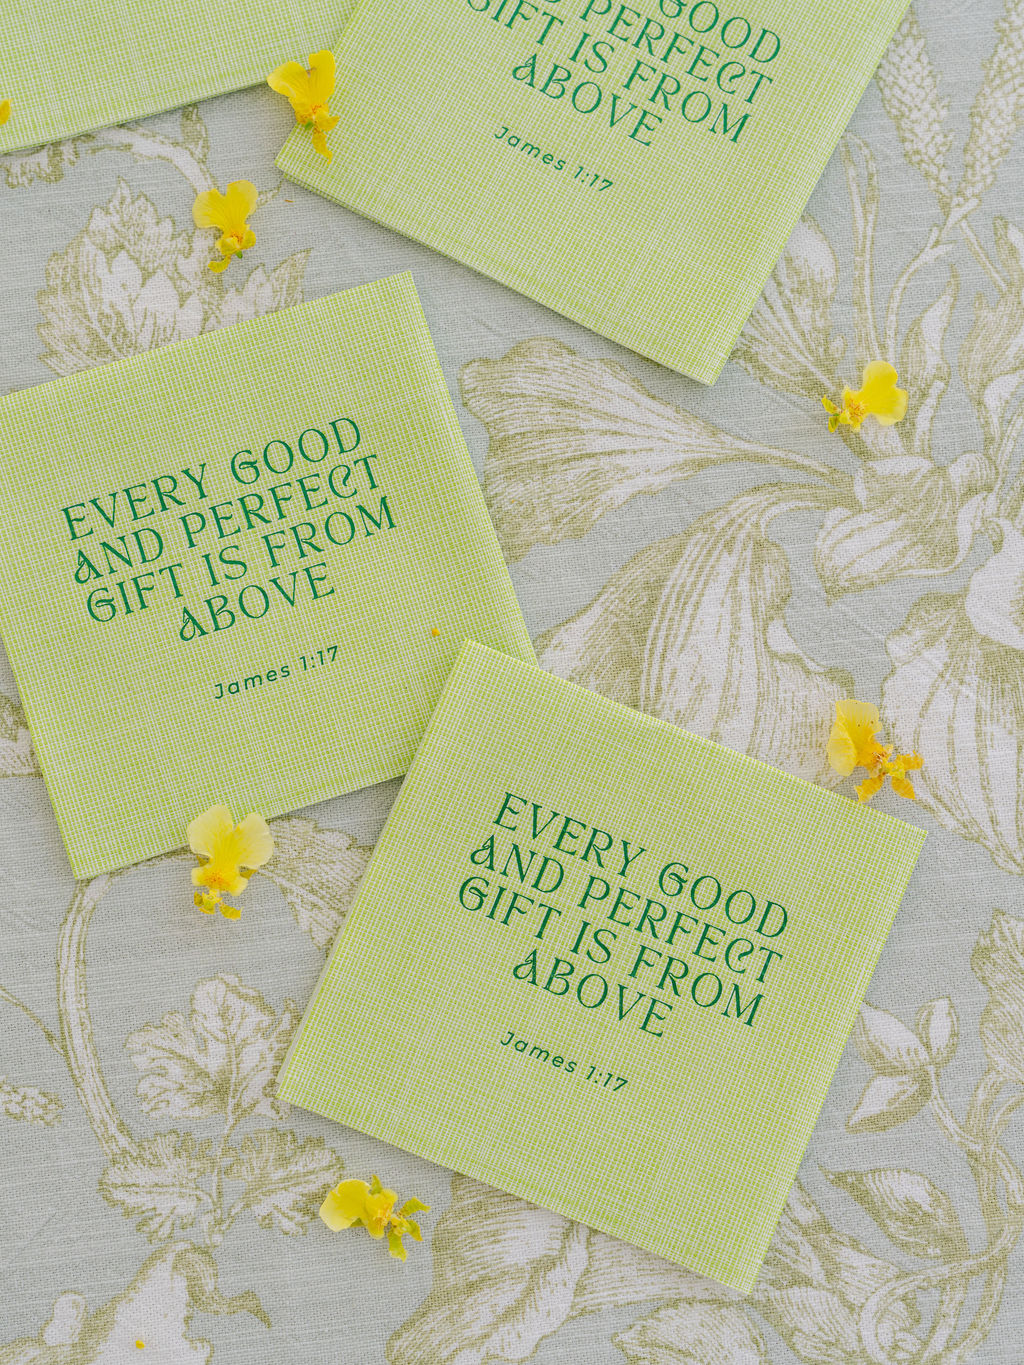 GOOD
AND PERFECT
GIFT IS FROM
ABOVE
James 1:17
EVERY GOOD
AND PERFECT
GIFT IS FROM
ABOVE
James 1:17
EVERY GOOD
AND PERFECT
GIFT IS FROM
ABOVE
James 1:17